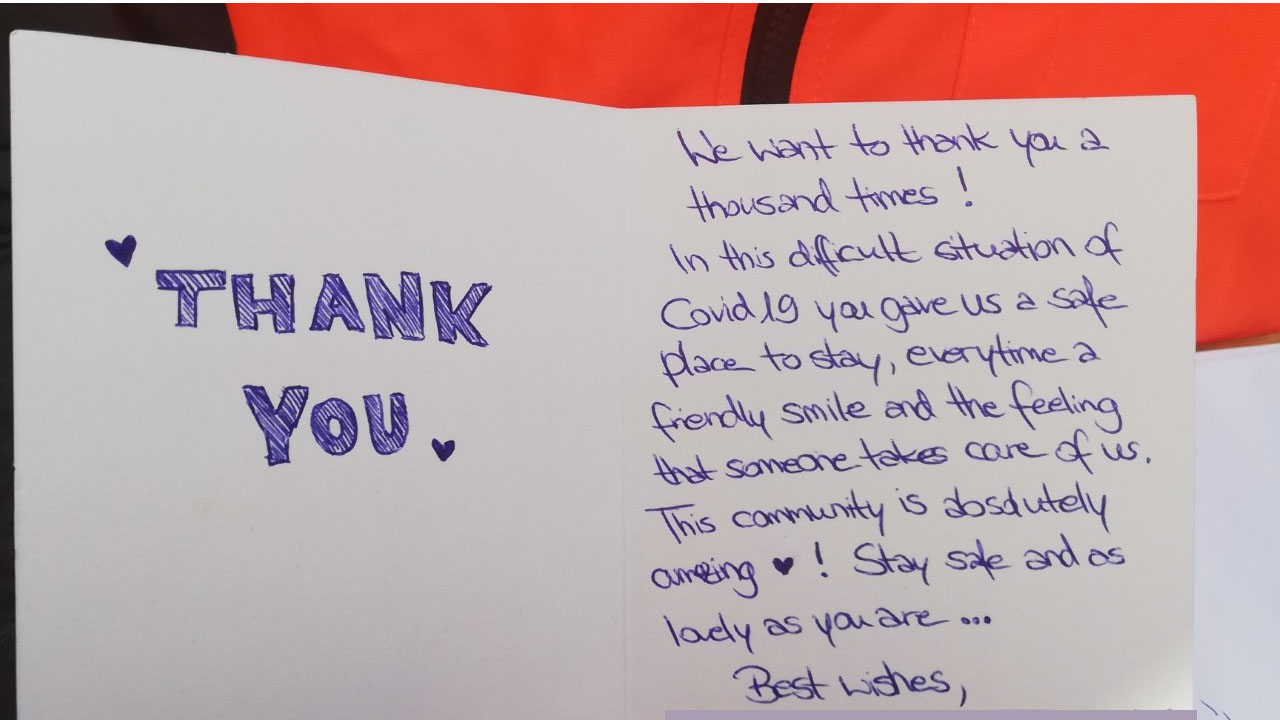 ♥
THANK
YOU ♥
We want to thank you a
thousand times !
In this dificult situation of
Covid 19 you gave us a safe
place to stay, everytime a
friendly smile and the feeling
that someone takes care of us.
This community is absolutely
amazing ♥ ! Stay safe and as
lovely as you are ...
Best wishes,